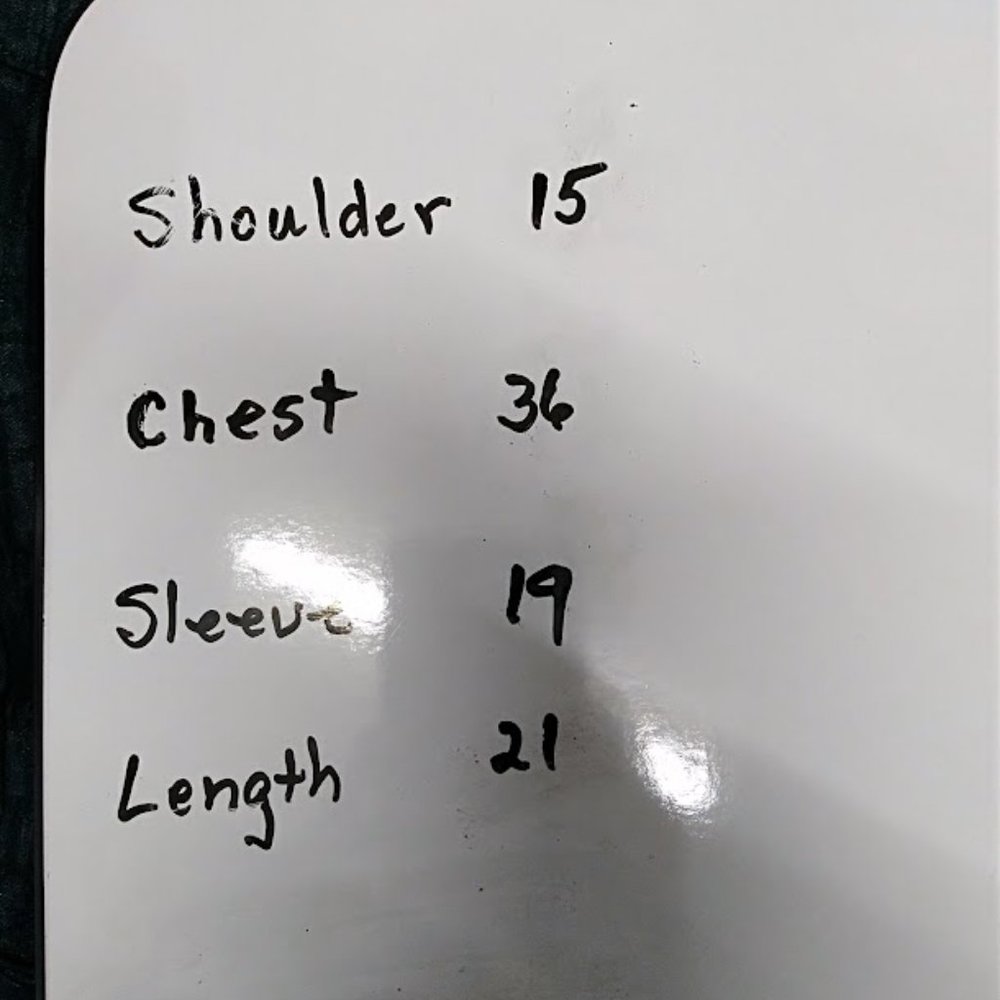 Shoulder 15
Chest 36
Sleeve 19
Length 21